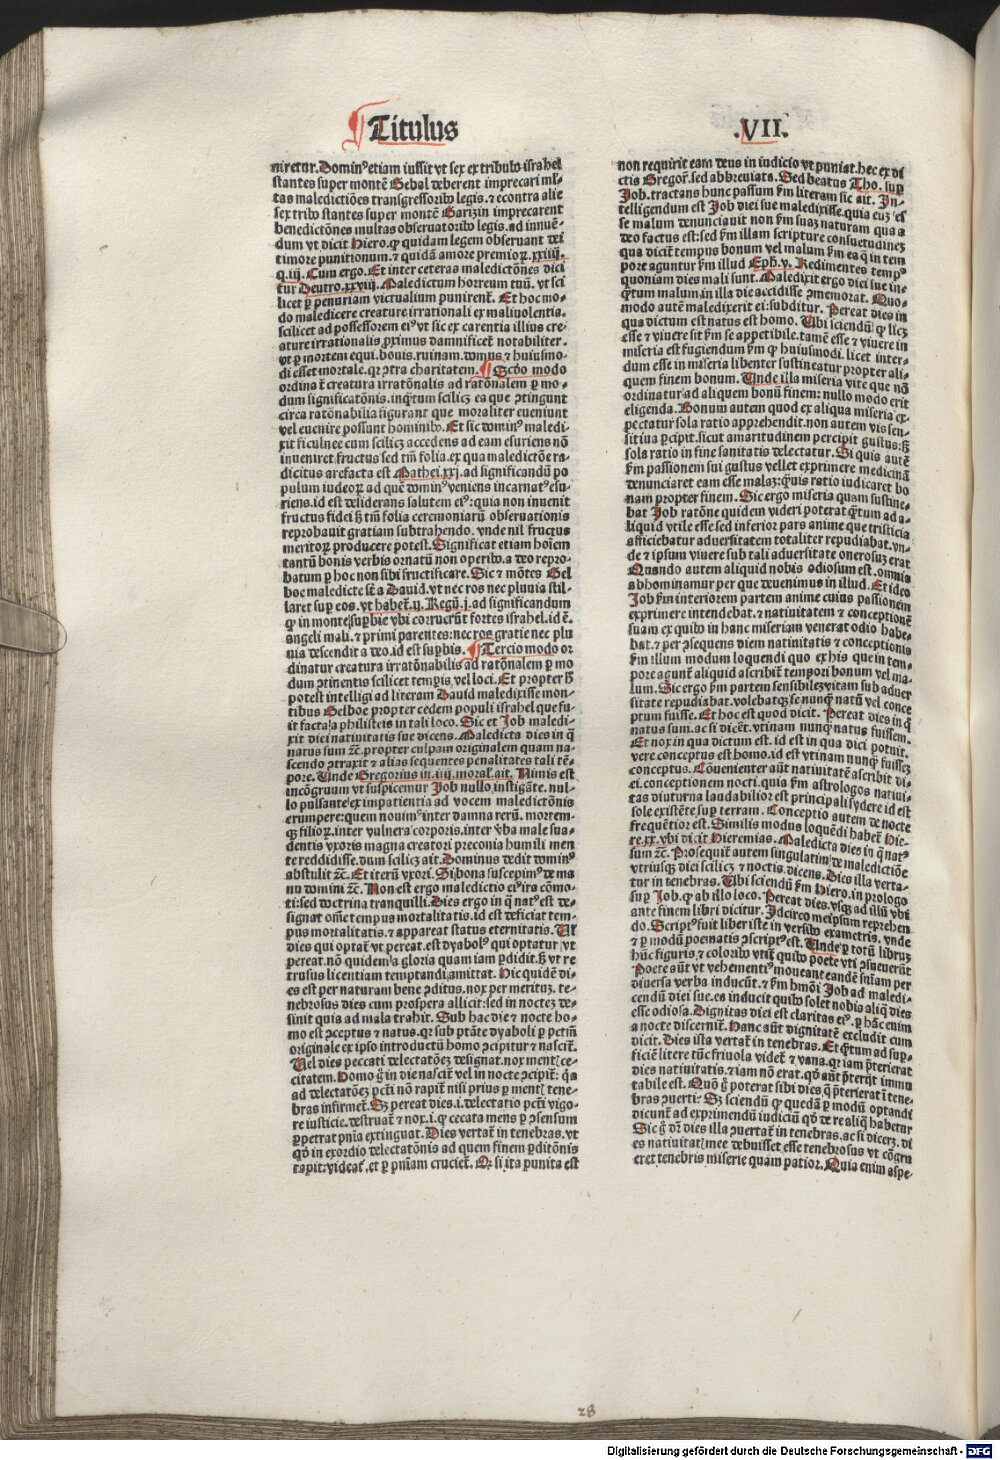 ¶ Titulus .VII.
niretur. Dominꝰ etiam iussit vt sex ex tribubꝰ israhel
stantes super montē Hebal deberent imprecari ml̓-
tas maledictiōes transgressoribꝰ legis. ⁊ econtra alie
sex tribꝰ stantes super montē Garizin imprecarent̄
benedictōnes multas obseruatoribꝰ legis. ad innuē-
dum vt dicit Hiero. ꝙ quidam legem obseruant dei
timore punitionum. ⁊ quidā amore premioꝝ. xxiiij.
q. iij. Cum ergo. Et inter ceteras maledictōnes dici
tur Deutro. xxviij. Maledictum horreum tuū. vt sci
licet ꝑ penuriam victualium punirent̄. Et hoc mo-
do maledicere creature irrationali ex maliuolentia.
scilicet ad possessorem eiꝰ vt sic ex carentia illius cre-
ature irrationalis ꝓximus damnificet̄ notabiliter.
vt ꝑ mortem equi. bouis. ruinam. domus ⁊ huiusmo-
di esset mortale. qꝛ ꝯtra charitatem. ¶ Scd̓o modo
ordinat̄ creatura irratōnalis ad ratōnalem ꝑ mo-
dum significatōnis. inqꝫtum scilicꝫ ea que ꝯtingunt
circa ratōnabilia figurant que moraliter eueniunt
vel euenire possunt hominibꝰ. Et sic dominꝰ maledi-
xit ficulnee cum scilicꝫ accedens ad eam esuriens nō
inueniret fructus sed tm̄ folia. ex qua maledictōe ra-
dicitus arefacta est Mathei. xxj. ad significandū po
pulum iudeoꝝ ad quē dominꝰ veniens incarnatꝰ esu-
riens. id est desiderans salutem eiꝰ: quia non inuenit
fructus fidei sꝫ tm̄ folia ceremoniarū obseruationis
reprobauit gratiam subtrahendo. vnde nil fructus
meritoꝝ producere potest. Significat etiam hoīem
tantū bonis verbis ornatū non operibꝰ. a deo repro-
batum ꝑ hoc non sibi fructificare. Sic ⁊ mōtes Gel
boe maledicte sūt a Dauid. vt nec ros nec pluuia stil-
laret suꝑ eos. vt habet̄. ij. Regū. j. ad significandum
ꝙ in monte suꝑbie vbi corruerūt fortes israhel. id ē.
angeli mali. ⁊ primi parentes: nec ros gratie nec plu
uia descendit a deo. id est suꝑbis. ¶ Tercio modo or
dinatur creatura irratōnabilis ad ratōnalem ꝑ mo
dum ꝯtinentis scilicet temꝑis vel loci. Et propter hꝫ
potest intelligi ad literam Dauid maledixisse mon-
tibus Gelboe propter cedem populi israhel que fu-
it facta a philisteis in tali loco. Sic et Job maledi-
xit diei natiuitatis sue dicens. Maledicta dies in qͣ
natus sum ⁊c̄. propter culpam originalem quam na-
scendo ꝯtraxit ⁊ alias sequentes penalitates tali tē-
pore. Unde Gregorius in. iiij. moral. ait. Nimis est
incōgruum vt suspicemur Job nullo instigāte. nul-
lo pulsante ex impatientia ad vocem maledictōnis
erumpere: quem nouimꝰ inter damna rerū. mortem-
qꝫ filioꝝ. inter vulnera corporis. inter v̓ba male sua-
dentis vxoris magna creatori preconia humili men
te reddidisse. dum scilicꝫ ait. Dominus dedit dominꝰ
abstulit ⁊c̄. Et iterū vxori. Si bona suscepimꝰ de ma
nu domini ⁊c̄. Non est ergo maledictio eiꝰ ira cōmo-
ti: sed doctrina tranquilli. Dies ergo in qͣ natꝰ est de-
signat om̄e tempus mortalitatis. id est deficiat tem-
pus mortalitatis. ⁊ appareat status eternitatis. Ul̓
dies qui optat̄ vt pereat. est dyabolꝰ qui optatur vt
pereat. nō quidem a gloria quam iam ꝑdidit. sꝫ vt re
trusus licentiam temptandi amittat. Hic quidē di-
es est per naturam bene ꝯditus. nox per meritūꝫ. te-
nebrosus dies cum prospera allicit: sed in noctem de-
sinit quia ad mala trahit. Sub hac die ⁊ nocte ho-
mo est ꝯceptus ⁊ natus. qꝛ sub ptāte dyaboli ꝑ pctm̄
originale ex ipso introductū homo ꝯcipitur ⁊ nascit̄.
Uel dies peccati delectatōeꝫ designat. nox mentꝭ ce-
citatem. Homo gͦ in die nascit̄ vel in nocte ꝯcipit̄: qn̄
ad delectatōeꝫ pctī nō rapit̄ nisi prius ꝑ mentꝭ tene-
bras infirmet̄. Sꝫ pereat dies. i. delectatio pctī vigo-
re iusticie. destruat̄ ⁊ nox. i. ꝙ cecata mens ꝑ ꝯsensum
ꝑpetrat pn̄ia extinguat. Dies vertat̄ in tenebras. vt
qd̓ in exordio delectatōnis ad quem finem ꝑditōnis
rapit: videat̄. et ꝑ pn̄iam cruciet̄. Qꝛ si ita punita est
non requirit eam deus in iudicio vt puniat. hec ex di
ctis Gregor̄. sed abbreuiats. Sed beatus Tho. suꝑ
Job. tractans hunc passum ẜm literam sic ait. In-
telligendum est Job diei sue maledixisse. quia euꝫ eſ
se malum denunciauit non ẜm suaꝫ naturam qua a
deo factus est: sed ẜm illam scripture consuetudineꝫ
qua dicit̄ tempus bonum vel malum ẜm ea qͣ in tem
pore aguntur ẜm illud Eph. v. Redimentes tempꝰ
quoniam dies mali sunt. Maledixit ergo diei sue in-
qꝫtum malum in illa die accidisse ꝯmemorat. Quo-
modo autē maledixerit ei: subditur. Pereat dies in
qua dictum est natus est homo. Ubi sciendū ꝙ licꝫ
esse ⁊ viuere sit ẜm se appetibile. tamē esse ⁊ viuere in
miseria est fugiendum ẜm ꝙ huiusmodi. licet inter-
dum esse in miseria libenter sustineatur propter ali-
quem finem bonum. Unde illa miseria vite que nō
ordinatur ad aliquem bonū finem: nullo modo erit
eligenda. Bonum autem quod ex aliqua miseria ex-
pectatur sola ratio apprehendit. non autem vis sen-
sitiua ꝑcipit. sicut amaritudinem percipit gustus: sꝫ
sola ratio in fine sanitatis delectatur. Si quis autē
ẜm passionem sui gustus vellet exprimere medicinā
denunciaret eam esse malaꝫ: qꝫuis ratio iudicaret bo
nam propter finem. Sic ergo miseria quam sustine-
bat Job ratōne quidem videri poterat qꝫtum ad a-
liquid vtile esse sed inferior pars anime que tristicia
afficiebatur aduersitatem totaliter repudiabat. vn-
de ⁊ ipsum viuere sub tali aduersitate onerosuꝫ erat
Quando autem aliquid nobis odiosum est. omnia
abhominamur per que deuenimus in illud. Et ideo
Job ẜm interiorem partem anime cuius passionem
exprimere intendebat. ⁊ natiuitatem ⁊ conceptionē
suam ex quibꝰ in hanc miseriam venerat odio habe-
bat. ⁊ per ꝯsequens diem natiuitatis ⁊ conceptionis
ẜm illum modum loquendi quo ex his que in tem-
pore agunt̄ aliquid ascribit̄ tempori bonum vel ma-
lum. Sic ergo ẜm partem sensibileꝫ vitam sub aduer
sitate repudiabat. volebatqꝫ se nunqꝫ natū vel conce
ptum fuisse. Et hoc est quod dicit. Pereat dies in qͣ
natus sum. ac si dicēt. vtinam nunqꝫ natus fuissem.
Et nox in qua dictum est. id est in qua dici potuit.
vere conceptus est homo. id est vtinam nunqꝫ fuisseꝫ
conceptus. Cōuenienter aūt natiuitatē ascribit di-
ei. conceptionem nocti. quia ẜm astrologos natiui-
tas diuturna laudabilior est principali sydere id est
sole existēte suꝑ terram. Conceptio autem de nocte
frequētior est. Similis modus loquēdi habet̄ Hie-
re. xx. vbi dicit Hieremias. Maledicta dies in qͣ natꝰ
sum ⁊c̄. Prosequit̄ autem singulatim de maledictiōe
vtriusqꝫ diei scilicꝫ ⁊ noctis. dicens. Dies illa verta-
tur in tenebras. Ubi sciendū ẜm Hiero. in prologo
suꝑ Job. ꝙ ab illo loco. Pereat dies. vsqꝫ ad illū vbi
ante finem libri dicitur. Idcirco meipsum reprehen
do. Scriptꝰ fuit liber iste in versibꝰ exametris. vnde
⁊ ꝑ modū poematis ꝯscriptꝰ est. Unde ꝑ totū librum
hūc figuris. ⁊ coloribꝰ vtit̄ quibꝰ poete vti ꝯsueuerūt
Poete aūt vt vehementiꝰ moueant eandē sn̄iam per
diuersa verba inducūt. ⁊ ẜm hmōi Job ad maledi-
cendū diei sue. es inducit quibꝰ solet nobis aliqͣ dies
esse odiosa. Dignitas diei est claritas eiꝰ. ꝑ hāc enim
a nocte discernit̄. Hanc aūt dignitatē excludit cum
dicit. Dies ista vertat̄ in tenebras. Et qꝫtum ad suꝑ-
ficiē litere tūc friuola videt̄ ⁊ vana. qꝛ iam ꝑterierat
dies natiuitatis. ⁊ iam nō erat. qd̓ aūt ꝑterijt immu
tabile est. Quō gͦ poterat sibi dies qͣ ꝑterierat ī tene-
bras ꝯuerti: Sꝫ sciendū ꝙ quedā ꝑ modū optandi
dicunt̄ ad exprimendū iudiciū qd̓ de re aliqͣ habetur
Sic gͦ dr̄ dies illa ꝯuertat̄ in tenebras. ac si dicereꝫ. di
es natiuitatꝭ mee debuisset esse tenebrosus vt cōgru
eret tenebris miserie quam patior. Quia enim aspe-
28
Digitalisierung gefördert durch die Deutsche Forschungsgemeinschaft - DFG